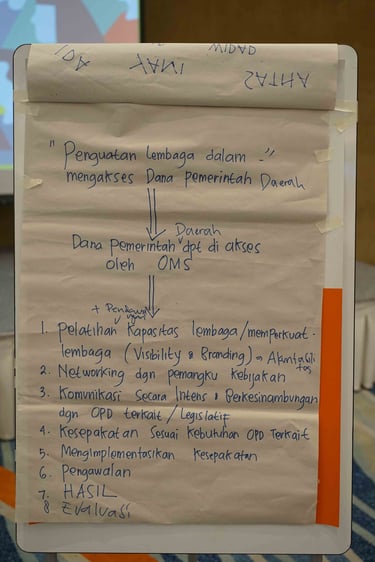 " Penguatan lembaga dalam "
mengakses Dana pemerintah Daerah
Daerah
Dana pemerintah dpt di akses
oleh OMS
1. Pelatihan Kapasitas lembaga/memperkuat
lembaga (Visibility & Branding) Akuntabilitas
2. Networking dgn pemangku Kebijakan
3. Komunikasi Secara Intens & Berkesinambungan
dgn OPD terkait/Legislatif
4. Kesepakatan Sesuai Kebutuhan OPD Terkait
5. Mengimplementasikan Kesepakatan
6. Pengawalan
7. HASIL
8. Evaluasi